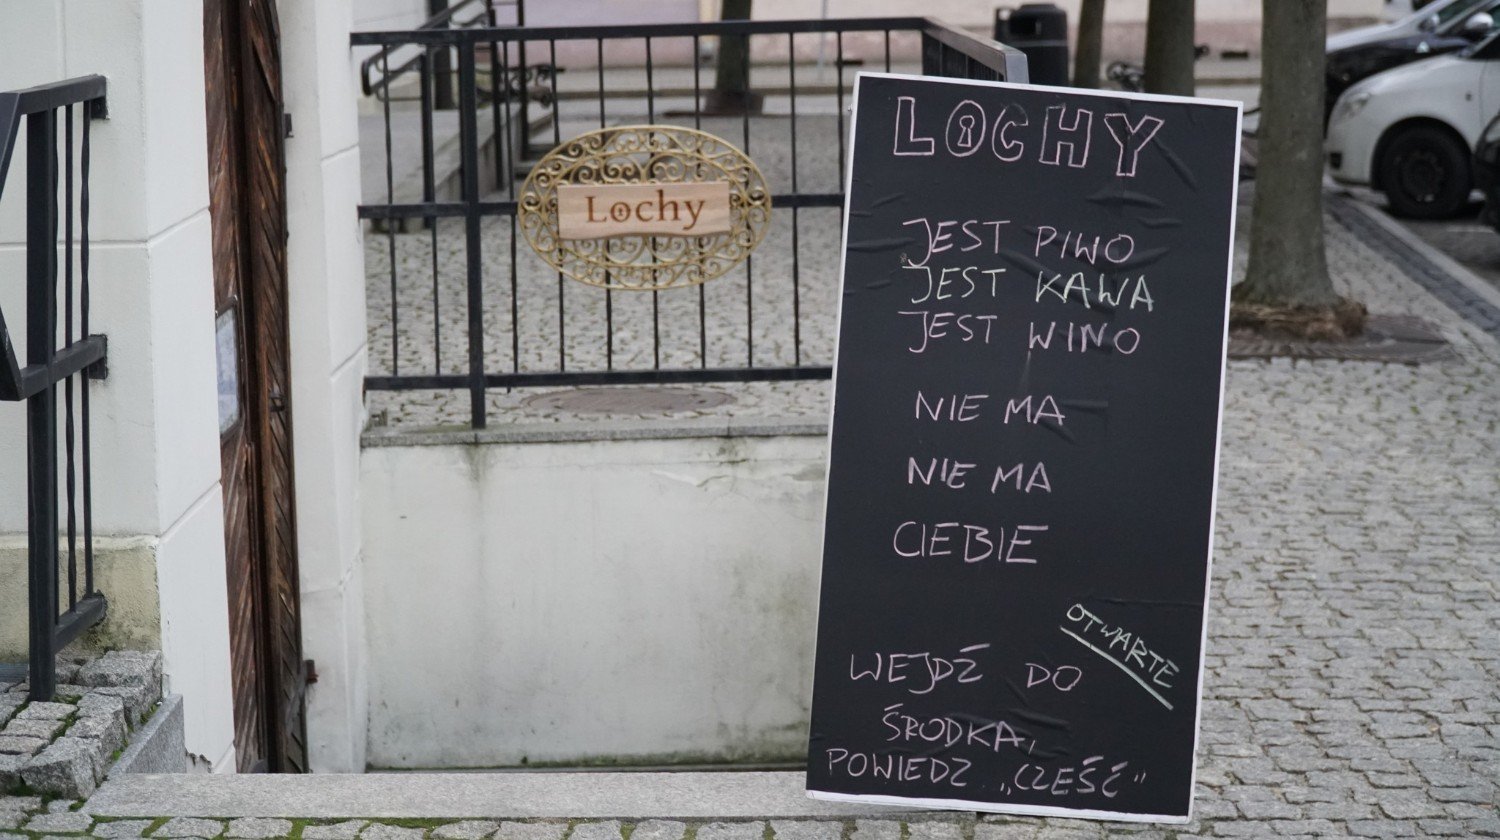 Lochy
LOCHY
JEST PIWO
JEST KAWA
JEST WINO
NIE MA
NIE MA
CIEBIE
OTWARTE
WEJDŹ DO
ŚRODKA,
POWIEDZ „CZEŚĆ"